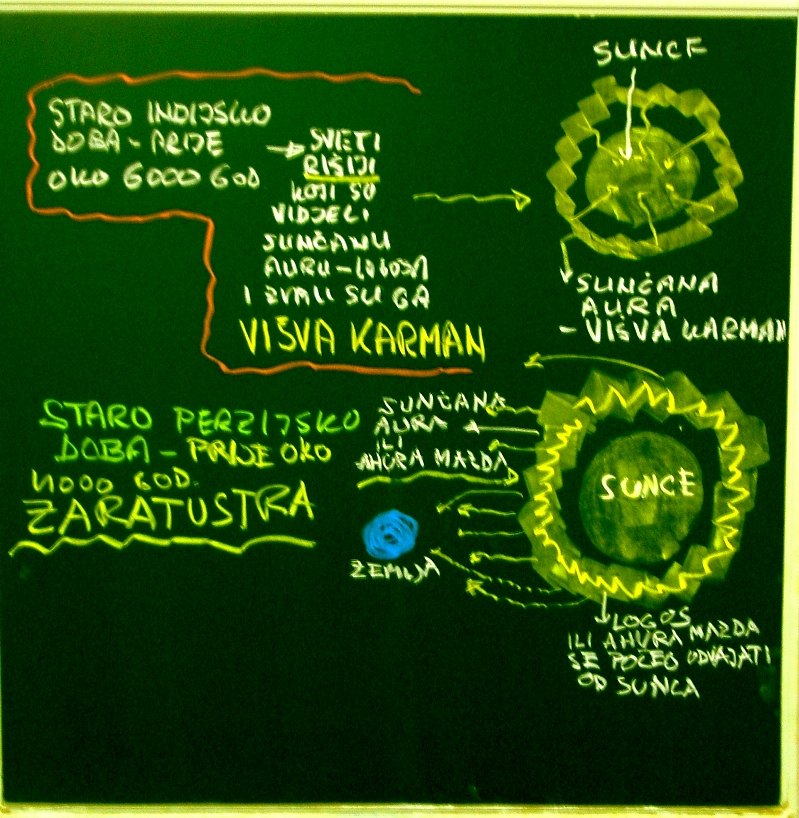 STARO INDIJSKO
DOBA - PRIJE
OKO 6000 GOD
SVETI
RIŠIJI
KOJI SU
VIDJELI
SUNČANU
AURU - LOGOSA
I ZVALI SU GA
VIŠVA KARMAN
SUNCE
SUNČANA
AURA
- VIŠVA KARMAN
STARO PERZIJSKO
DOBA - PRIJE OKO
4000 GOD.
ZARATUSTRA
SUNČANA
AURA
ILI
AHURA MAZDA
ZEMLJA
SUNCE
LOGOS
ILI AHURA MAZDA
SE POČEO ODVAJATI
OD SUNCA